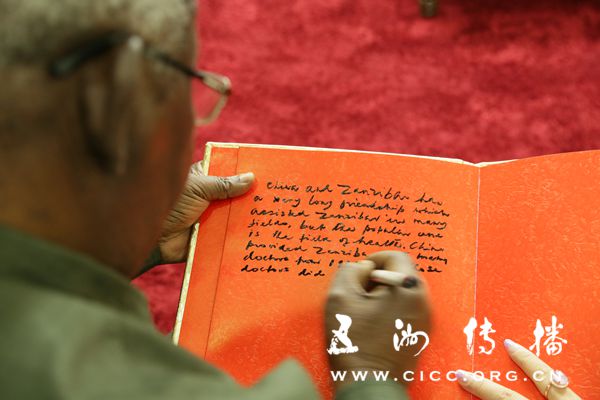 China and Zanzibar has
a very long friendship which
assisted Zanzibar in many
fields, but the popular one
is the field of health. China
provided Zanzibar many
doctors from
doctors did
五洲传播
WWW.CICC.ORG.CN